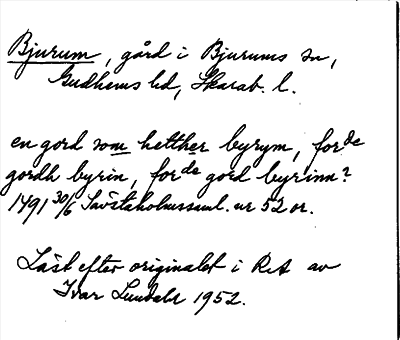 Bjurum, gård i Bjurums sn,
Gudhems hd, Skarab. l.
en gord som hetther byrym, forde
gordh byrin, forde gord byrinn?
1491 30/6 Sävstaholmssaml. nr 52 or.
Läst efter originalet i RA av
Ivar Lundahl 1952.